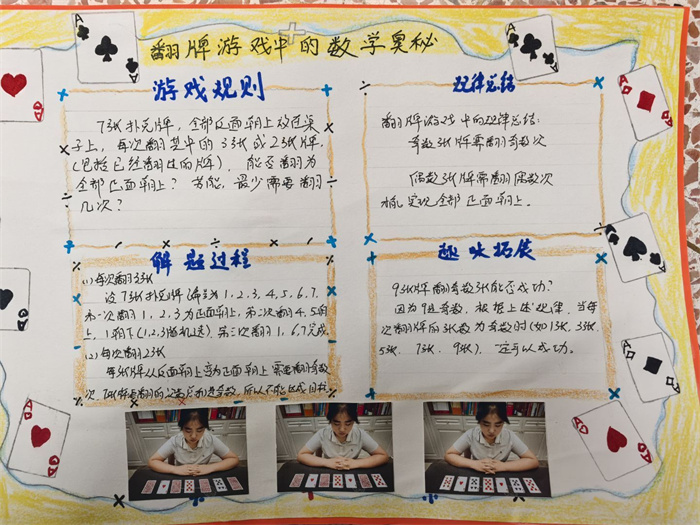 翻牌游戏中的数学奥秘
游戏规则
7张扑克牌，全部反面朝上放在桌
子上，每次翻其中的3张或2张牌.
(包括已经翻过的牌)，能否翻为
全部正面朝上？若能，最少需要翻
几次？
规律总结
翻牌游戏中的规律总结：
奇数张牌需翻奇数次
偶数张牌需翻偶数次
才能实现全部正面朝上。
解题过程
(1)每次翻3张
设7张扑克牌编号为1,2,3,4,5,6,7.
第一次翻1,2,3为正面朝上，第二次翻4,5朝
上,1朝下(1,2,3随机选).第三次翻1,6,7完成
(2)每次翻2张
每张牌从反面朝上变为正面朝上需要翻奇数
次
所以不能达成目标
趣味拓展
9张牌翻奇数张能否成功？
因为9是奇数，根据上述规律，当每
次翻牌的张数为奇数时(如1张、3张、
5张、7张、9张)，一定可以成功。
A
A
A
A
A
A
A
A
A
A